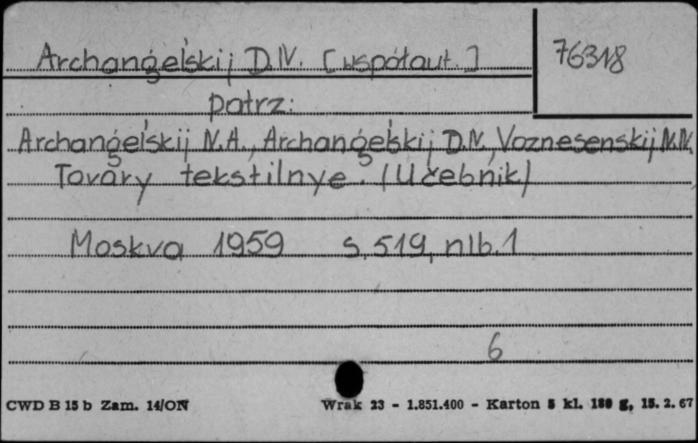 Archangel'skij D.N. [współaut.] 76318
patrz:
Archangel'skij N.A., Archangel'skij D.N., Voznesenskij N.N.
Tovary tekstilnye. (Učebnik)
Moskva 1959 s. 519, nlb. 1
6
CWD B 15 b Zam. 14/ON Wrak 23 - 1.851.400 - Karton 5 kl. 180 g, 15. 2. 67